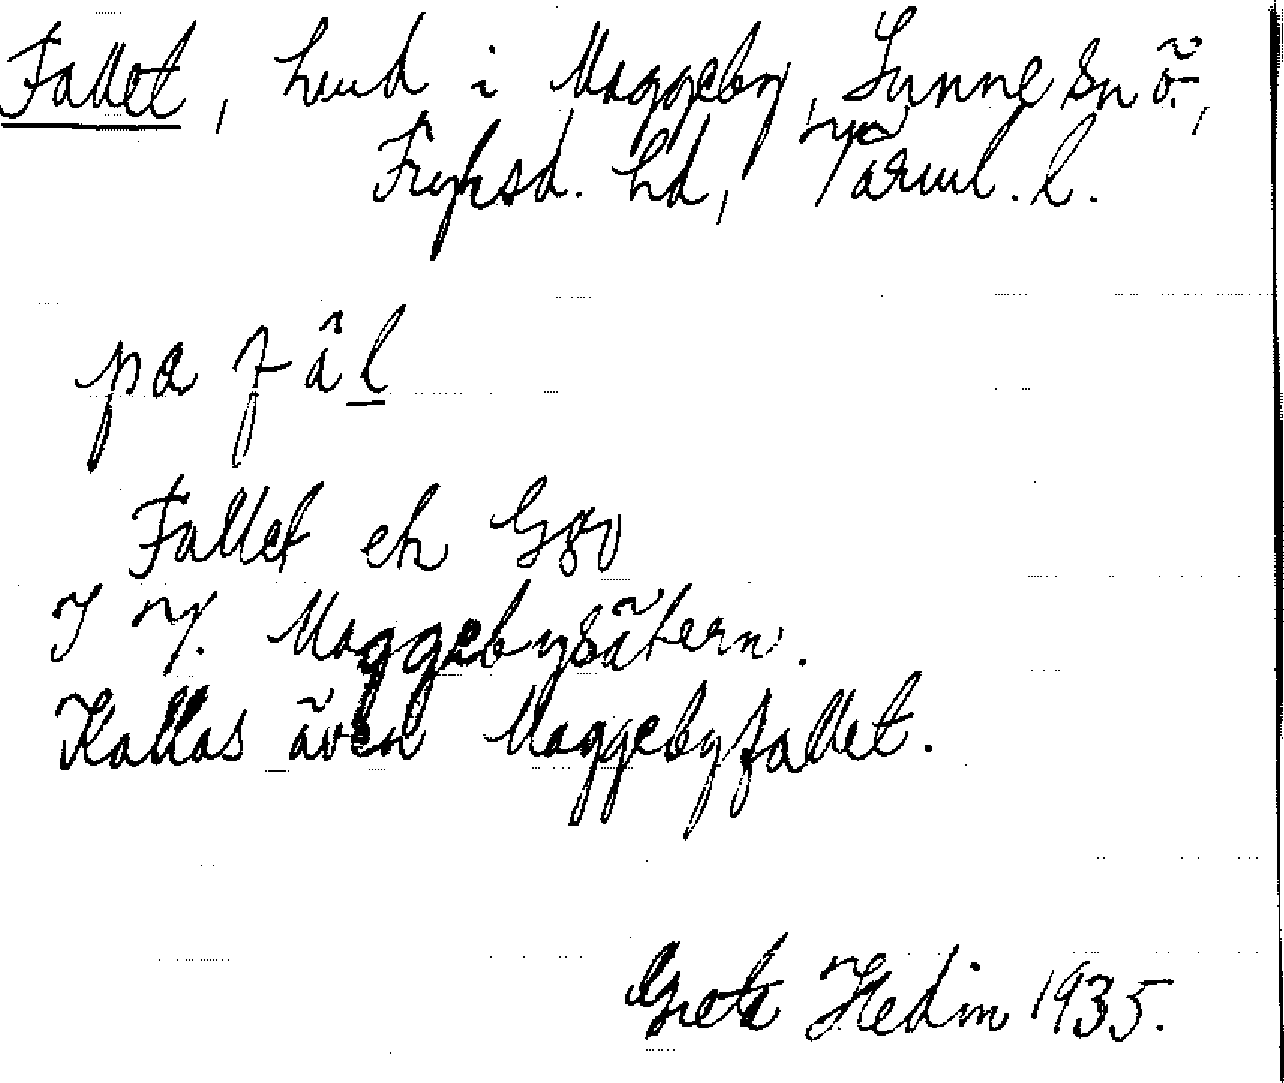 Fallet, hmd i Maggeby, Sunne sn ö.,
Fryksd. hd, Värml. l.
pa fâl
Fallet ek G80
I V. Maggebysätern.
Kallas även Maggebyfallet.
Greta Hedin 1935.